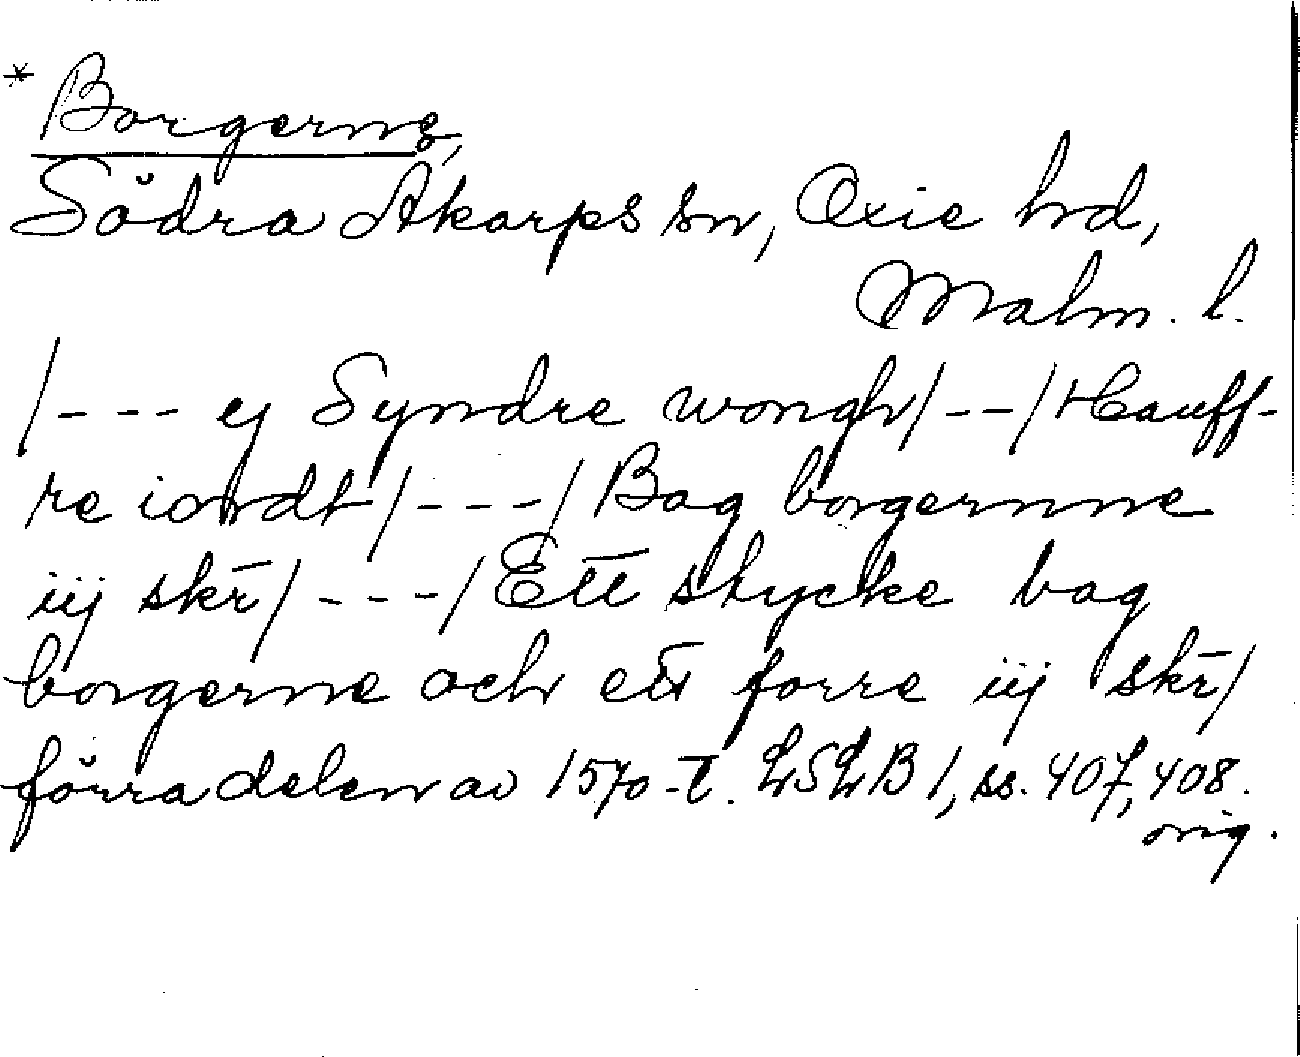 * Borgerne,
Södra Åkarps sn, Oxie hd,
Malm. l.
/--- ej Syndre wongh/--/Hauff-
re iordt/---/Bag borgernne
iij skr̄/---/Ett stycke bag
borgerne och ett forre iij skr̄/
förra delen av 1570-t. LSLB 1, ss. 407, 408.
orig.